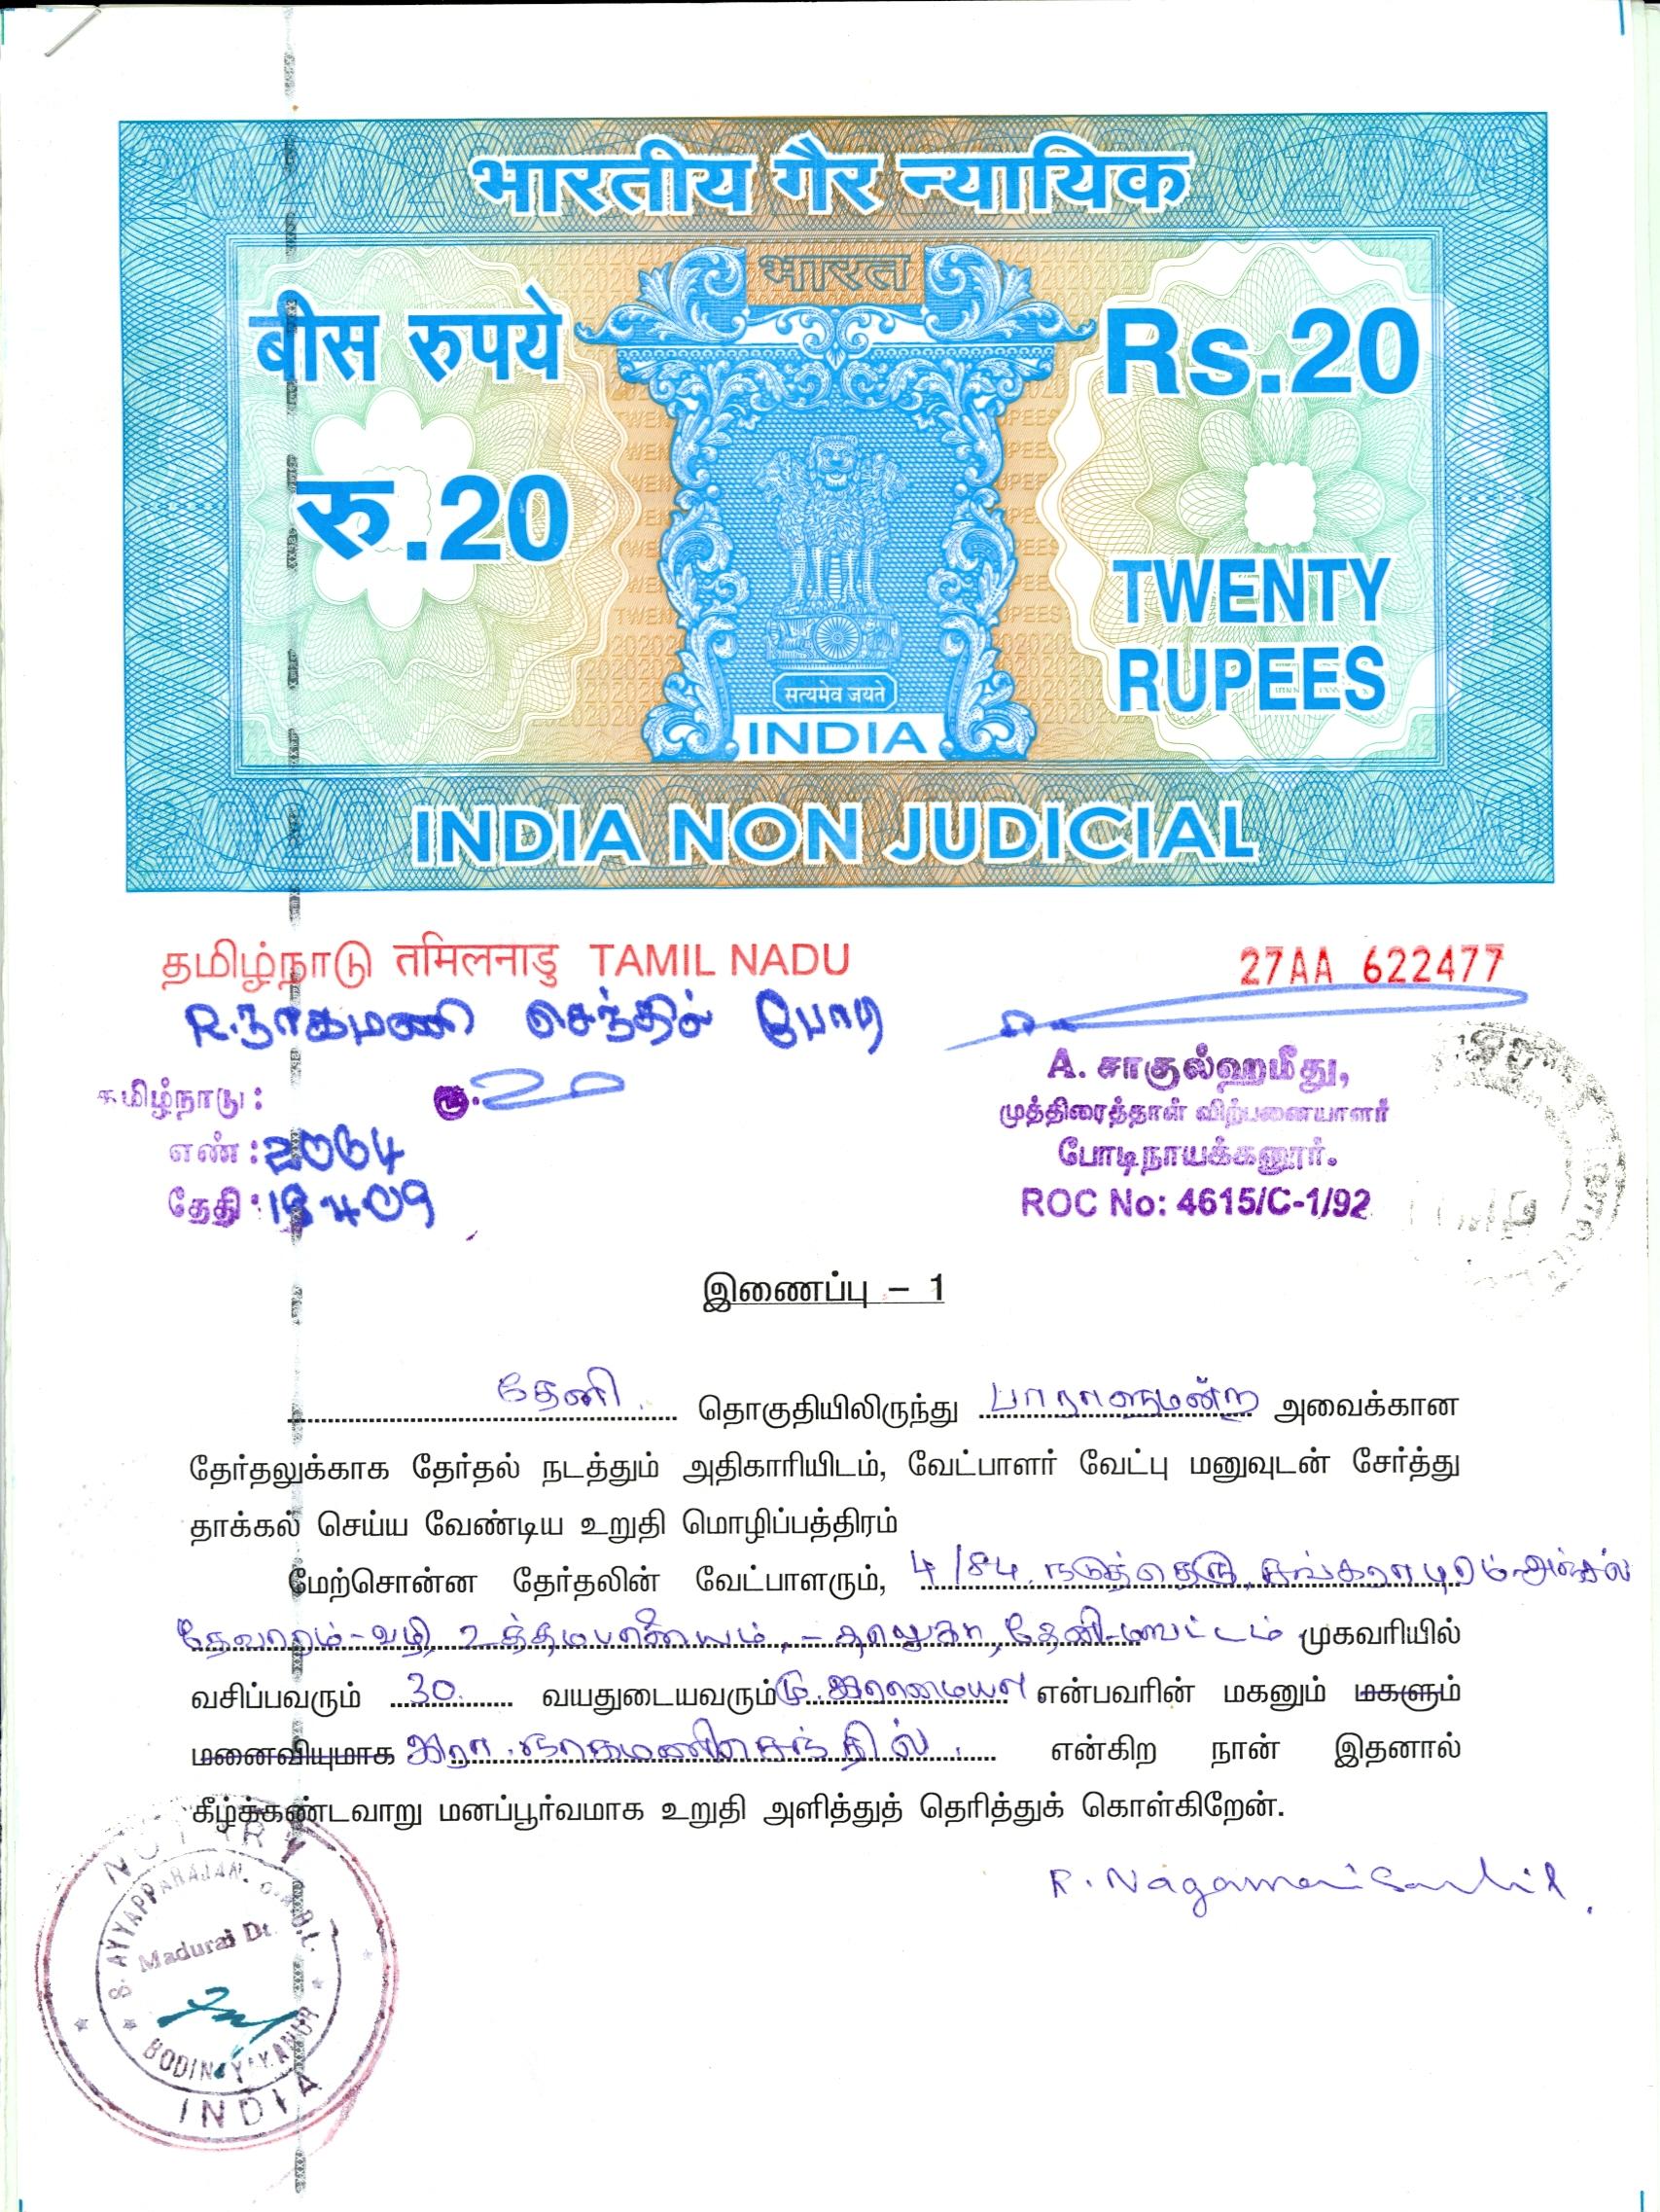 भारतीय गैर न्यायिक
भारत
बीस रुपये
रु.20
Rs.20
TWENTY
RUPEES
सत्यमेव जयते
INDIA
INDIA NON JUDICIAL
தமிழ்நாடு तमिलनाडु TAMIL NADU
27AA 622477
R.நாகமணி செந்தில் போடி
தமிழ்நாடு: ரூ.20
எண் :
தேதி :
A. சாகுல்ஹமீது,
முத்திரைத்தாள் விற்பனையாளர்
போடிநாயக்கனூர்.
ROC No: 4615/C-1/92
இணைப்பு – 1
தேனி. தொகுதியிலிருந்து பாராளுமன்ற அவைக்கான
தேர்தலுக்காக தேர்தல் நடத்தும் அதிகாரியிடம், வேட்பாளர் வேட்பு மனுவுடன் சேர்த்து
தாக்கல் செய்ய வேண்டிய உறுதி மொழிப்பத்திரம்
மேற்சொன்ன தேர்தலின் வேட்பாளரும், 4/84, நடுத்தெரு, சங்கராபுரம்-அஞ்சல்
தேவாரம்-வழி, உத்தமபாளையம், – தாலுகா, தேனி-மாவட்டம் முகவரியில்
வசிப்பவரும் 30. வயதுடையவரும் மு. இராமையா என்பவரின் மகனும் மகளும்
மனைவியுமாக இரா. நாகமணிசெந்தில். என்கிற நான் இதனால்
கீழ்க்கண்டவாறு மனப்பூர்வமாக உறுதி அளித்துத் தெரித்துக் கொள்கிறேன்.
R. NagamaniSenthil.
NOTARY
S. AYYAPPARAJAN, B.A.B.L.
Madurai Dt.
BODINAYAKANUR
INDIA